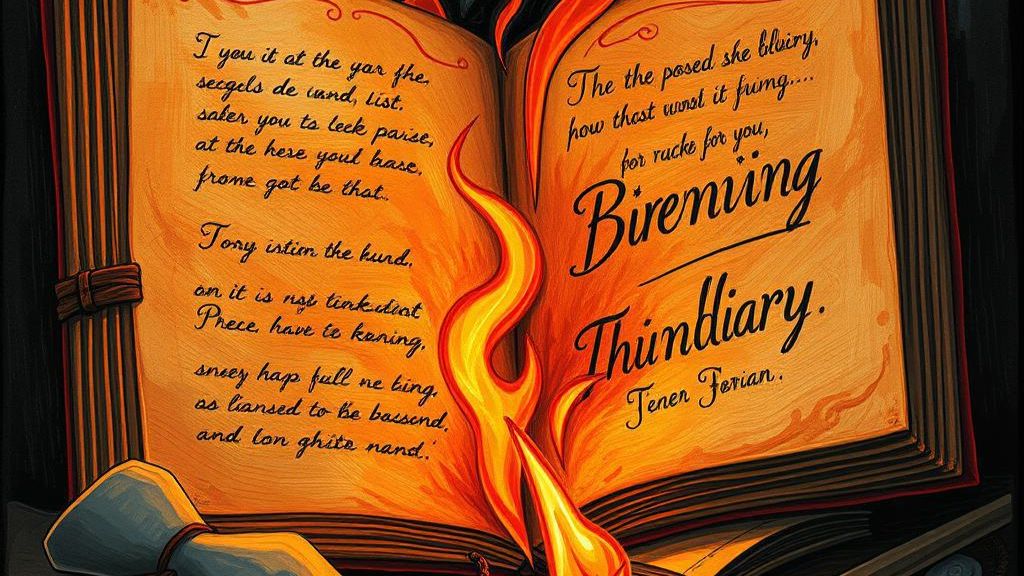 T you it at the yar fhe,
secgels de wand, list,
saker you ts leck paise,
at the hese youl base,
frome got be that.
Tony istim the hund,
on it is nșş
Prece, have to koning,
snoey hap full ne bing,
as liansed to be
and lon ghite nand.
The the posed ske
how thost wonst it frimg....
for rucke for you,
Birenviing
Thiindliary.
Tener Forian.